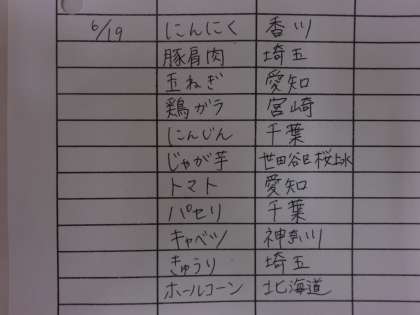 6/19 にんにく 香川
豚肩肉 埼玉
玉ねぎ 愛知
鶏ガラ 宮崎
にんじん 千葉
じゃが芋 世田谷区桜上水
トマト 愛知
パセリ 千葉
キャベツ 神奈川
きゅうり 埼玉
ホールコーン 北海道